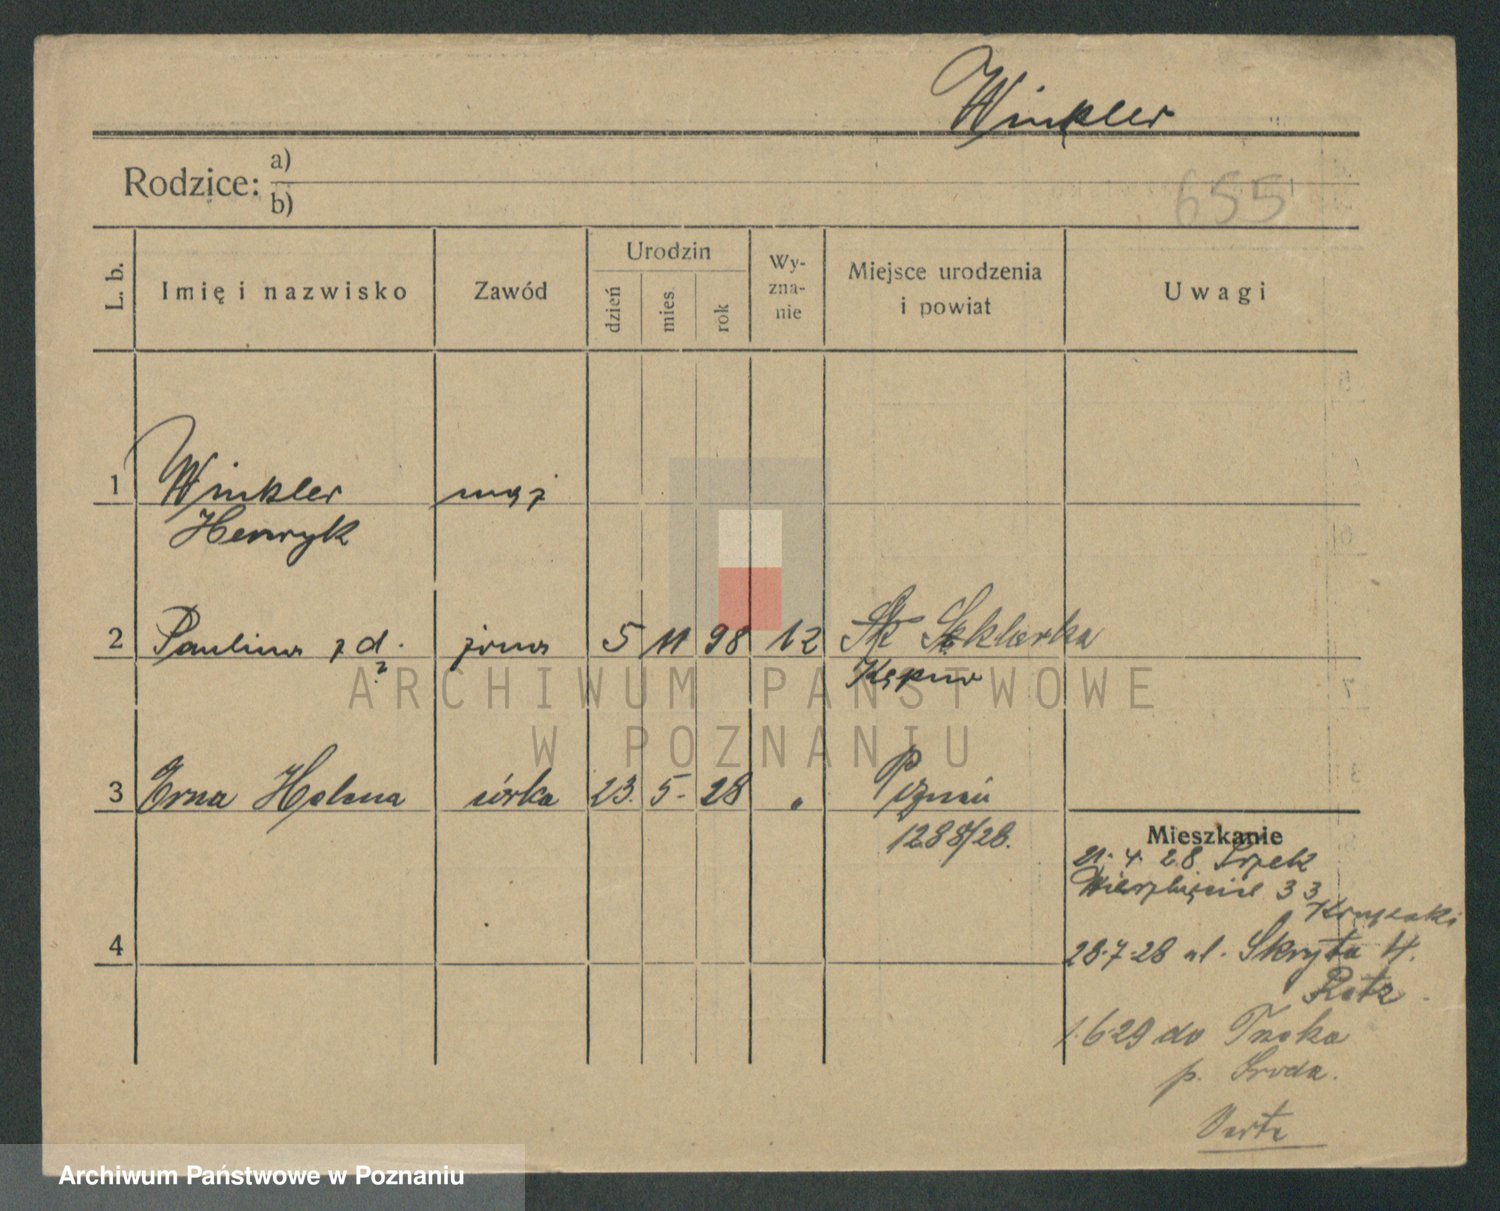 Winkler
Rodzice: a)
b)
655
L. b. Imię i nazwisko Zawód Urodzin dzień mies. rok Wyznanie Miejsce urodzenia i powiat Uwagi
1 Winkler mąż
Henryk
2 Paulina z d. żona 5 11 98 Sklarka
? Kępno
ARCHIWUM PAŃSTWOWE
W POZNANIU
3 Erna Helena córka 23. 5- 28 " Poznań
1288/28.
Mieszkanie
21. 4. 28
Wierzbięcice 33
4
28-7-28 ul. Skryta 4.
Ratz
1.6.29 do
p. Środa.
Archiwum Państwowe w Poznaniu